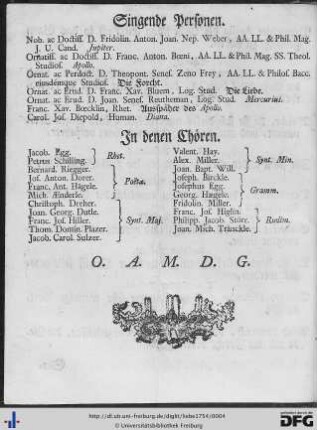 Singende Personen.
Nob. ac Doctiss. D. Fridolin. Anton. Joan. Nep. Weber, AA. LL. & Phil. Mag.
J. U. Cand. Jupiter.
Ornatiss. ac Doctiss. D. Franc. Anton. Beeni, AA. LL. & Phil. Mag. SS. Theol.
Studios. Apollo.
Ornat. ac Perdoct. D. Theopont. Senes. Zeno Frey, AA. LL. & Philos. Bacc.
ejusdemque Studios. Die Forcht.
Ornat. ac Erud. D. Franc. Xav. Bluem, Log. Stud. Die Liebe.
Ornat. ac Erud. D. Joan. Senes. Reutheman, Log. Stud. Mercurius.
Franc. Xav. Boecklin, Rhet. Ausspäher des Apollo.
Carol. Jos. Diepold, Human. Diana.
In denen Chören.
Jacob. Egg.
Petrus Schilling. Rhet.
Bernard. Riegger.
Jos. Anton. Dorer.
Franc. Ant. Hägele.
Mich. Ænderle. Poëtæ.
Christoph. Dreher.
Joan. Georg. Dutle.
Franc. Jos. Hiller.
Thom. Domin. Plazer.
Jacob. Carol. Sulzer. Synt. Maj.
Valent. Hay.
Alex. Miller.
Joan. Bapt. Will. Synt. Min.
Joseph. Birckle.
Josephus Egg.
Georg. Hægele.
Fridolin. Miller. Gramm.
Franc. Jos. Higlin.
Philipp. Jacob. Störr.
Joan. Mich. Trænckle. Rudim.
O. A. M. D. G.
http://dl.ub.uni-freiburg.de/diglit/liebe1754/0004
© Universitätsbibliothek Freiburg
gefördert durch die
DFG